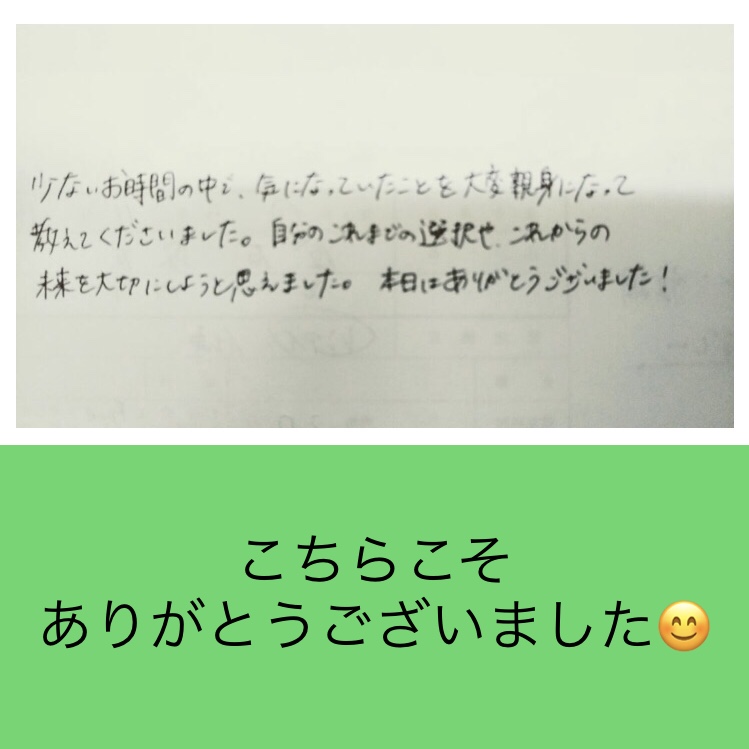 少ないお時間の中で、気になっていたことを大変親身になって
教えてくださいました。自分のこれまでの選択や、これからの
未来を大切にしようと思えました。本日はありがとうございました!
こちらこそ
ありがとうございました😊